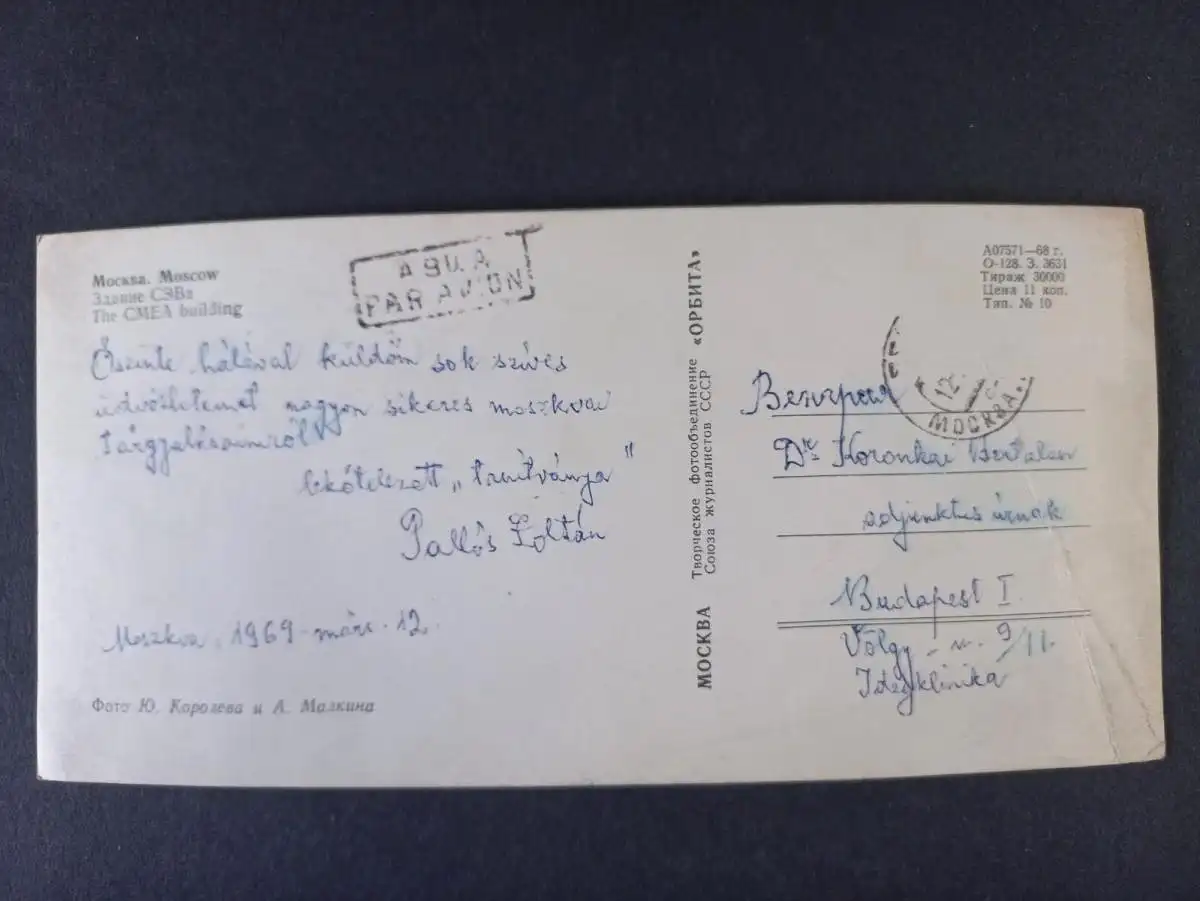 Москва. Moscow
Здание СЭВа
The CMEA building
АВИА
PAR AVION
Őszinte hálával küldöm sok szíves
üdvözletemet nagyon sikeres moszkvai
tárgyalásaimról
lekötelezett „tanítványa"
Pallós Zoltán
Moszkva, 1969 márc. 12.
Фото Ю. Королева и А. Малкина
МОСКВА Творческое фотообъединение «ОРБИТА»
Союза журналистов СССР
А07571—68 г.
О-128. З. 3631
Тираж 30000
Цена 11 коп.
Тип. № 10
12
МОСКВА
Венгрия
Dr. Koronkai Bertalan
adjunktus úrnak
Budapest I.
Völgy - u. 9/11.
Idegklinika